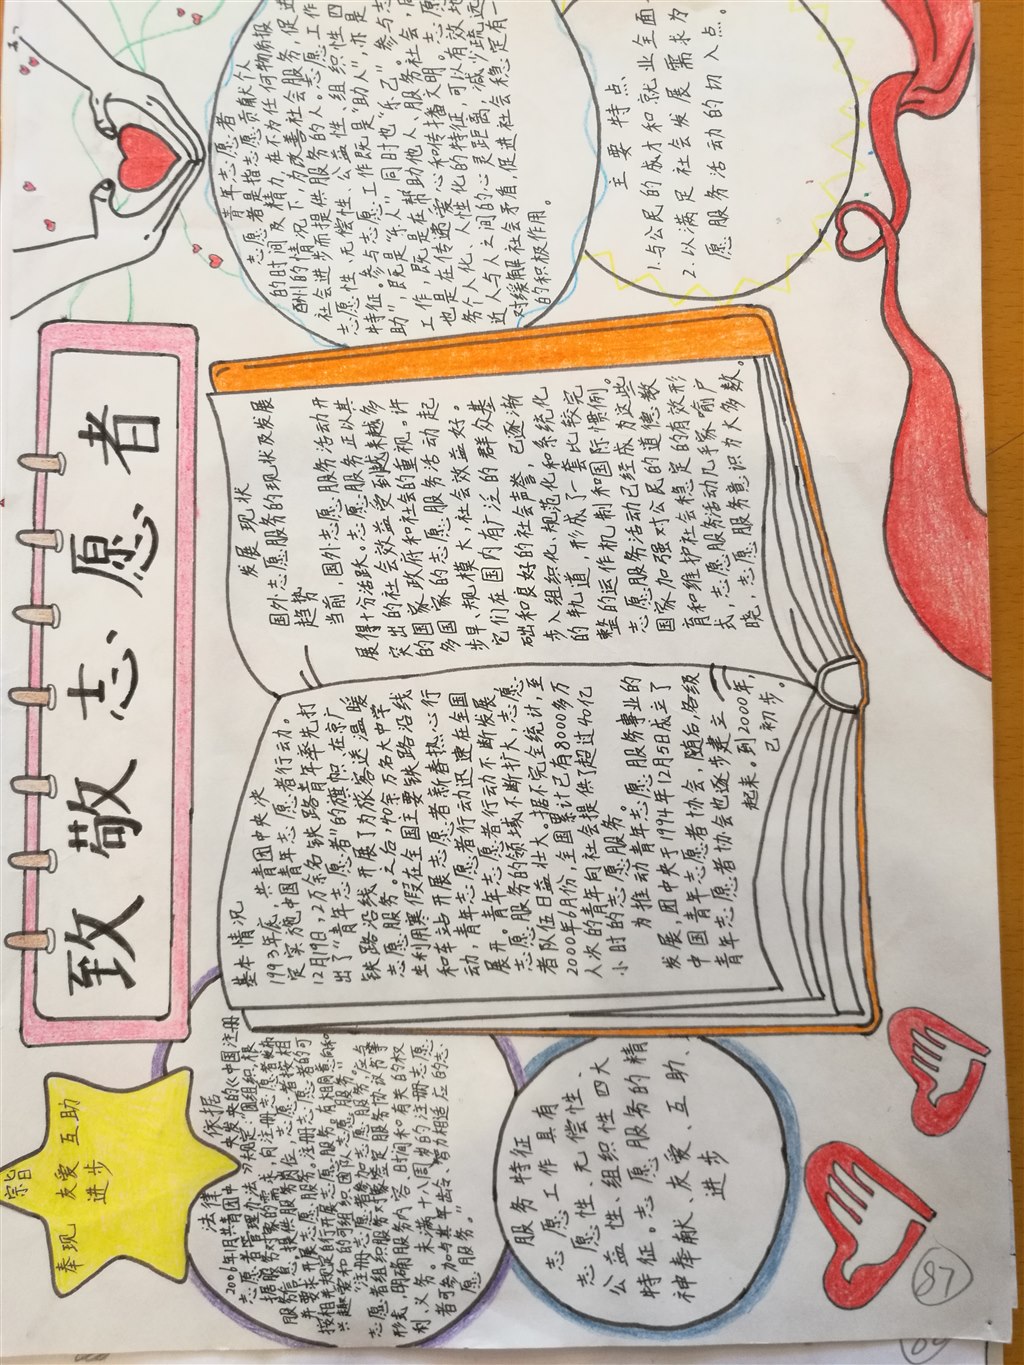 致敬志愿者
宗旨
奉现 友爱 互助
进步
法律依据
2006年11月共青团中央发央的《中国注册
志愿者管理办法》规定:团组织根
兴趣爱和的可组织团队志愿服务。
形式,明确服务内容、时间和有关的权
利、义务。未满十八周岁的注册志愿
者可参加与其年龄、智力相适应的志
愿服务。”
服务特征
志愿工作具有
志愿性、无偿性、
公益性、组织性四大
特征。志愿服务的精
神奉献、友爱、互助、
进步
基本情况
1993年底,共青团中央决
定实施中国青年志愿者行动。
12月19日,2万余名铁路青年率先打
出了“青年志愿者”的旗帜,在京广
铁路沿线开展了为旅客送温暖
志愿服务。之后,40余万名大中学
生利用寒假在全国主要铁路沿线
和车站开展志愿者新春热心行
动,青年志愿者行动迅速在全国
展开。青年志愿者行动不断发展,
志愿服务的领域不断扩大,志愿
者队伍日益壮大。据不完全统计,至
2000年6月份,全国累计已有8000多万
人次的青年向社会提供了超过40亿
小时的志愿服务。
为推动青年志愿服务事业的
发展,团中央于1994年12月5日成立了
中国青年志愿者协会,随后,各级
青年志愿者协会也逐步建立
起来。到2000年,
已初步。
发展现状
国外志愿服务的现状及发展
趋势
当前,国外志愿服务活动开
展得十分活跃。志愿服务正以其
突出的社会效益受到越来越多
的国家政府和社会的重视。许
多国家的志愿服务活动起
步早、规模大、社会效益好。
它们在国内有广泛的群众基
础和良好的社会声誉,已逐渐
步入组织化、规范化和系统化
的轨道,形成了一套比较完
整的运作机制和国际惯例。
志愿服务活动已经成为这些
国家加强对公民的道德教
育和维护社会稳定的有效形
式,志愿服务活动几乎家喻户
晓,志愿服务意识为大多数。
志愿青年志愿者
志愿者是指志愿贡献个人
的时间及精力,在不为任何物质报
酬的情况下,为改善社会服务,促进
社会进步而提供服务的人。志愿工作
志愿性、无偿性、公益性、组织性四
特征。参与志愿工作既是“助人”亦是
助”,既是“乐人”同时也“乐己”。参与志
工作,既是在帮助他人、服务社会,同
也是在传递爱心和传播文明。志愿
务个人化、人性化的特征,可以有效地
近人与人之间的心灵距离,减少疏远
对缓解社会矛盾,促进社会稳定有一
的积极作用。
主要特点
1.与公民的成才和就业全面
2.以满足社会发展需求为
愿服务活动的切入点。
87